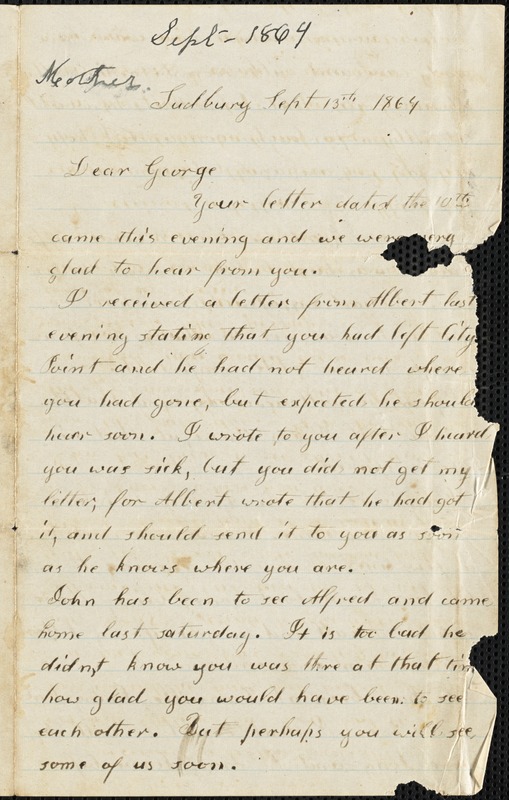 Sept - 1864
Mother.
Sudbury Sept 13th 1864
Dear George
Your letter dated the 10th
came this evening and we were very
glad to hear from you.
I received a letter from Albert last
evening stating that you had left City
Point and he had not heard where
you had gone, but expected he should
hear soon. I wrote to you after I heard
you was sick, but you did not get my
letter, for Albert wrote that he had got
it, and should send it to you as soon
as he knows where you are.
John has been to see Alfred and came
home last saturday. It is too bad he
didn't know you was thre at that tim
how glad you would have been to see
each other. But perhaps you will see
some of us soon.